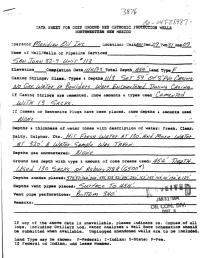 3876
30-045-23987
DATA SHEET FOR DEEP GROUND BED CATHODIC PROTECTION WELLS
NORTHWESTERN NEW MEXICO
Operator Meridian Oil Inc. Location: Unit Sec. 27 Twp 32 Rng 09
Name of Well/Wells or Pipeline Serviced
San Juan 32-9 Unit #
Completion Date Total Depth 484' Land Type F
Casing Strings, Sizes, Types & Depths Set 59' Of 8" PVC Casing.
No Gas, Water, or Boulders Were Encountered During Casing.
If Casing Strings are cemented, show amounts & types used Cemented
With 13 Sacks.
If Cement or Bentonite Plugs have been placed, show depths & amounts used
None
Depths & thickness of water zones with description of water: Fresh, Clear,
Salty, Sulphur, Etc. Hit Fresh Water At 130' And More Water
At 320'. A Water Sample Was Taken.
Depths gas encountered: None
Ground bed depth with type & amount of coke breeze used: 484' Depth.
Used 130 Sacks of Asbury 218R (6500#)
Depths anodes placed:
Depths vent pipes placed: Surface To 484'.
Vent pipe perforations: Bottom 340'.
Remarks:
OIL CON. DIV.
If any of the above data is unavailable, please indicate so. Copies of all
logs, including Drillers Log, Water Analyses & Well Bore Schematics should
be submitted when available. Unplugged abandoned wells are to be included.
Land Type may be shown: F-Federal; I-Indian; S-State; P-Fee.
If Federal or Indian, add Lease Number.